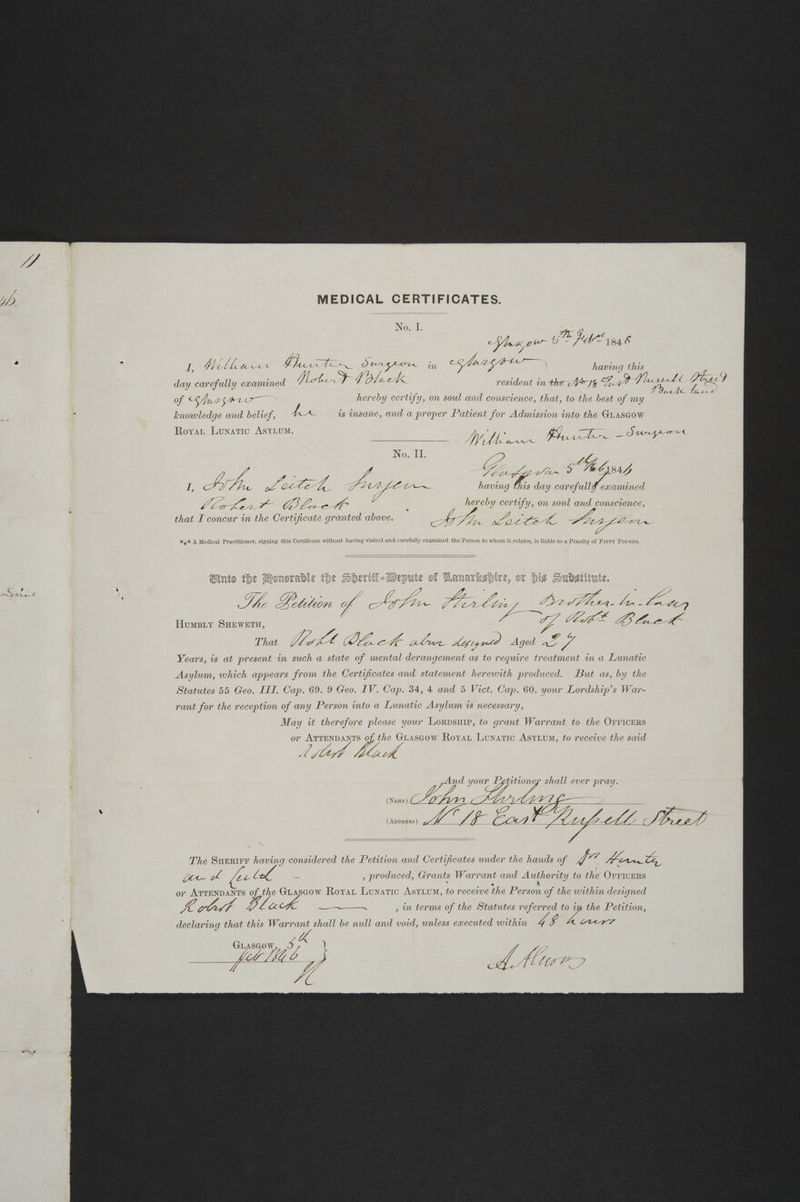 11
46
MEDICAL CERTIFICATES.
No. I.
Glasgow 5th Feby 1846
I, William Hunter Surgeon in Glasgow having this
day carefully examined Robert Black resident in the No 18 East Russell Street
Back land
of Glasgow hereby certify, on soul and conscience, that, to the best of my
knowledge and belief, he is insane, and a proper Patient for Admission into the GLASGOW
ROYAL LUNATIC ASYLUM.
William Hunter - Surgeon
No. II.
Glasgow 5th Feby 1846
I, John Leitch Surgeon having this day carefully examined
Robert Black hereby certify, on soul and conscience,
that I concur in the Certificate granted above. John Leitch Surgeon
*⁎* A Medical Practitioner, signing this Certificate without having visited and carefully examined the Person to whom it relates, is liable to a Penalty of FIFTY POUNDS.
Unto the Honorable the Sheriff-Depute of Lanarkshire, or his Substitute.
The Petition of John Stirling Brother-in-law
of Robt Black
HUMBLY SHEWETH,
That Robt Black above designed Aged 27
Years, is at present in such a state of mental derangement as to require treatment in a Lunatic
Asylum, which appears from the Certificates and statement herewith produced. But as, by the
Statutes 55 Geo. III. Cap. 69. 9 Geo. IV. Cap. 34, 4 and 5 Vict. Cap. 60. your Lordship's War-
rant for the reception of any Person into a Lunatic Asylum is necessary,
May it therefore please your LORDSHIP, to grant Warrant to the OFFICERS
or ATTENDANTS of the GLASGOW ROYAL LUNATIC ASYLUM, to receive the said
Robert Black
And your Petitioner shall ever pray.
(NAME) John Stirling
(ADDRESS) No 18 East Russell Street
The SHERIFF having considered the Petition and Certificates under the hands of Drs Hunter
and Leitch , produced, Grants Warrant and Authority to the OFFICERS
or ATTENDANTS of the GLASGOW ROYAL LUNATIC ASYLUM, to receive the Person of the within designed
Robert Black , in terms of the Statutes referred to in the Petition,
declaring that this Warrant shall be null and void, unless executed within 48 hours
GLASGOW, 5th
Feb 1846